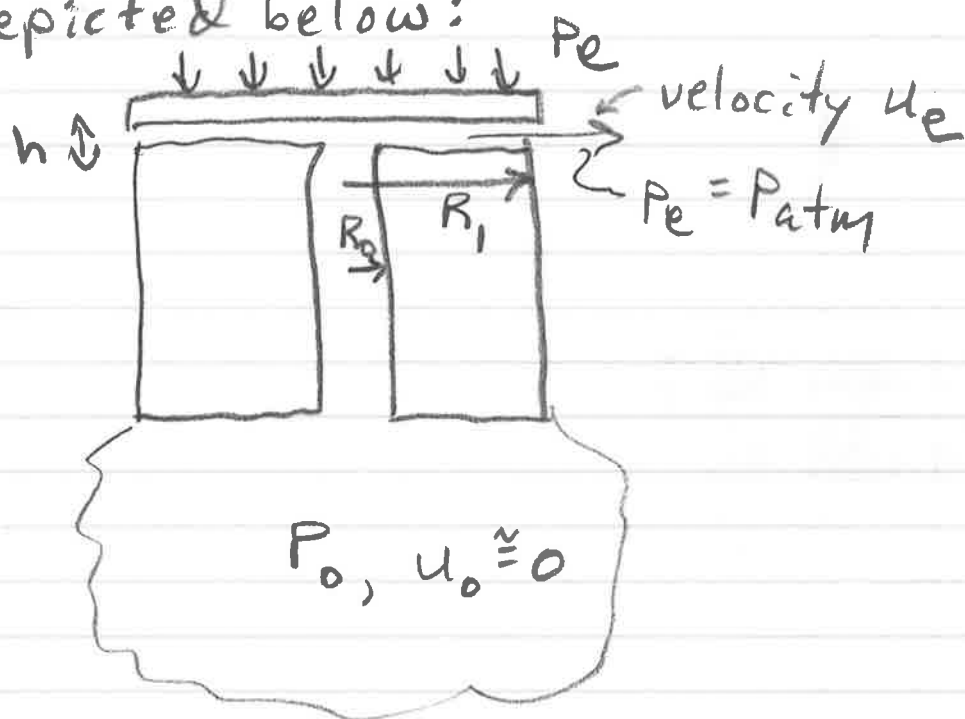 epicted below:
Pe
velocity ue
h
Pe = Patm
R1
Ro
Po, uo ≅ 0